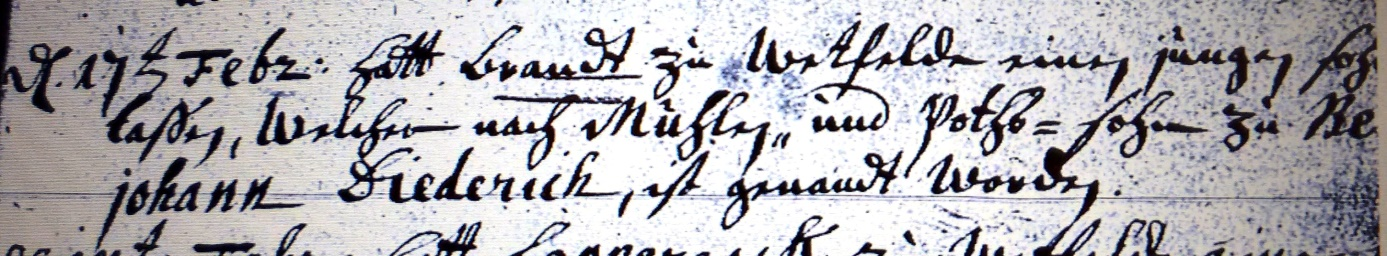 d. 17t Febr: hatt Brandt zu Wetfelde einen jungen soh
lassen, Welcher nach Mühlen, und Poths= sohn zu Re
johann Diederich, ist genandt worden.
Febr. hatt zu